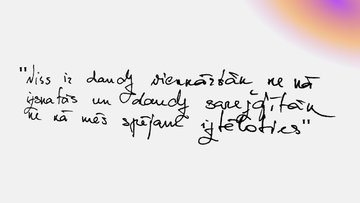 "Viss ir daudz vienkāršāk ne kā
izskatās un daudz sarežģītāk
ne kā mēs spējam iztēloties"